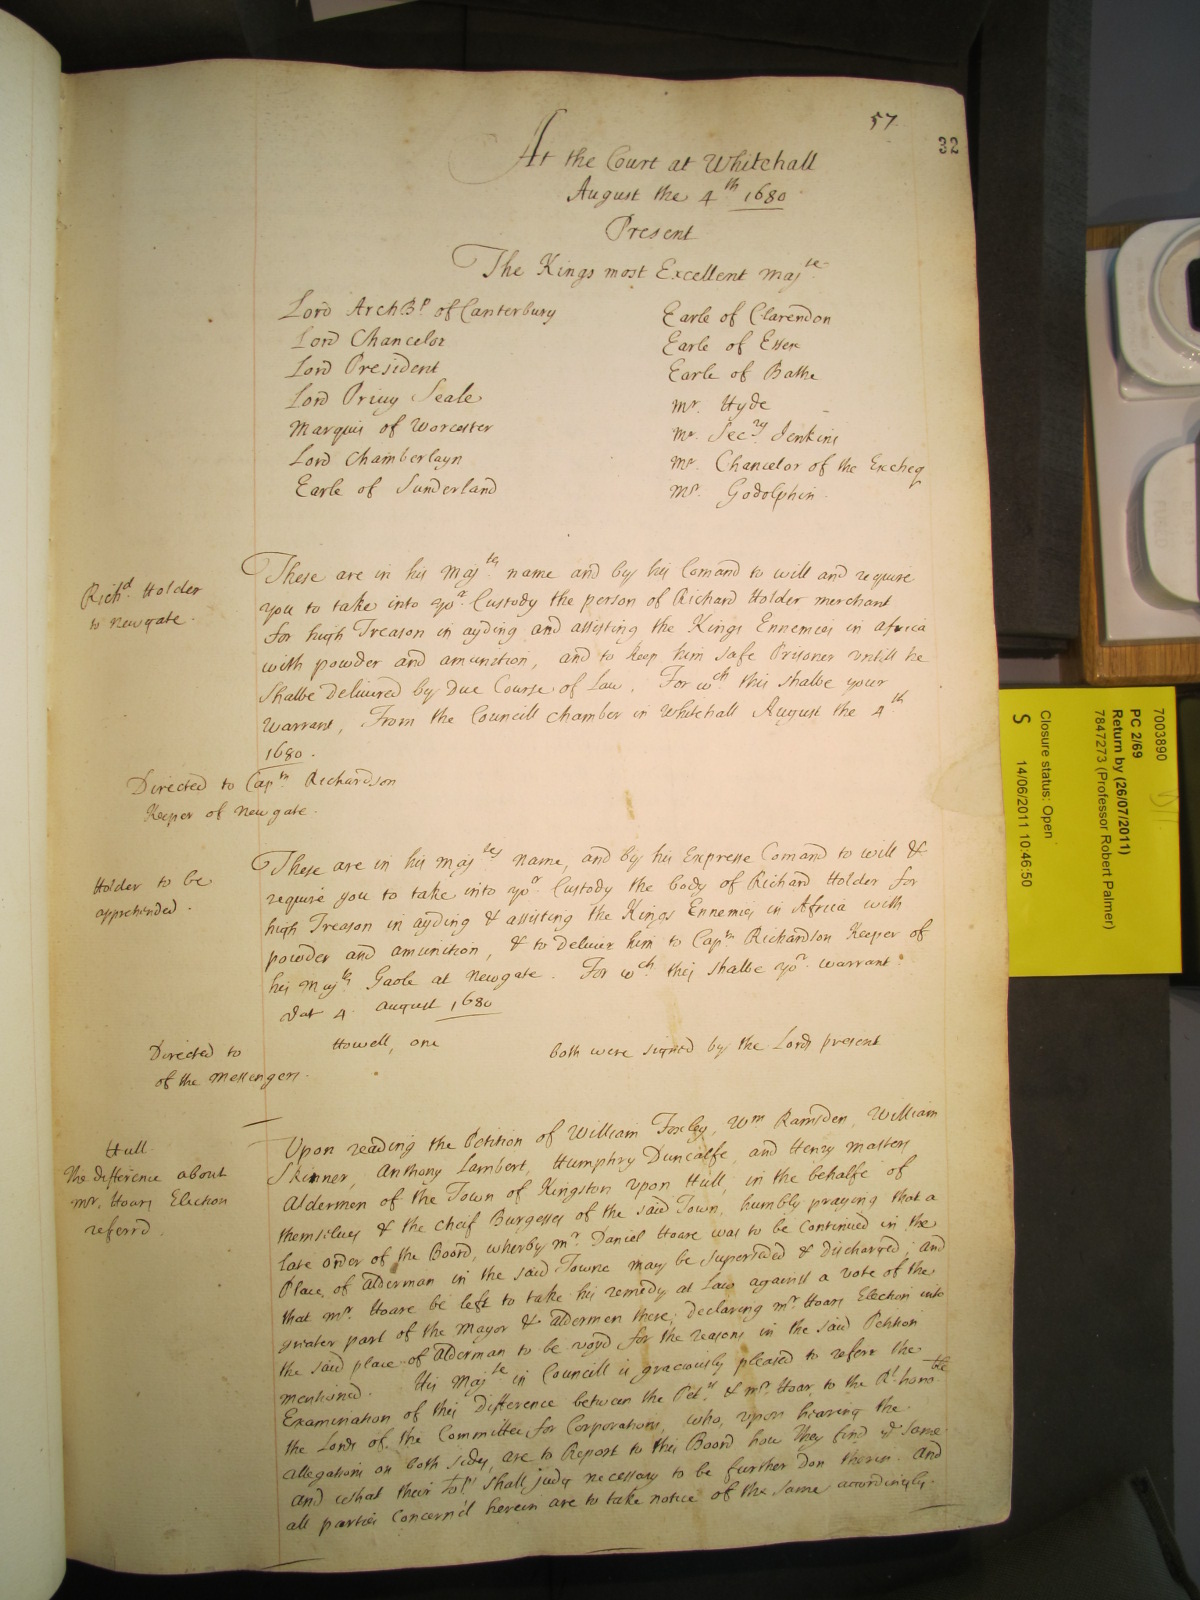 57
32
At the Court at Whitehall
August the 4th 1680
Present
The Kings most Excellent Majte
Lord ArchBp of Canterbury
Lord Chancelor
Lord President
Lord Privy Seale
Marquis of Worcester
Lord Chamberlayn
Earle of Sunderland
Earle of Clarendon
Earle of Essex
Earle of Bathe
Mr. Hyde
Mr. Secry Jenkins
Mr. Chancelor of the Excheq
Mr. Godolphin.
Richd Holder
to Newgate.
These are in his Majtes name and by his Comand to will and require
you to take into yor Custody the person of Richard Holder merchant
for high Treason in ayding and assisting the Kings Ennemies in Africa
with powder and amunition, and to keep him safe Prisoner untill he
shalbe delivered by due Course of Law. For wch this shalbe your
Warrant, From the Councill chamber in Whitehall August the 4th
1680.
Directed to Captn Richardson
Keeper of Newgate.
Holder to be
apprehended.
These are in his Majtes name, and by his Expresse Comand to will &
require you to take into yor Custody the body of Richard Holder for
high Treason in ayding & assisting the Kings Ennemies in Africa with
powder and amunition, & to deliver him to Captn Richardson Keeper of
his Majts Gaole at Newgate. For wch this shalbe yor warrant.
Dat 4 August 1680
Directed to Howell, one
of the Messengers.
both were signed by the Lords present
Hull
The difference about
Mr. Hoars Election
referrd.
Upon reading the Petition of William Foxley, Wm Ramsden, William
Skinner, Anthony Lambert, Humphry Duncalfe, and Henry Masters
Aldermen of the Town of Kingston upon Hull, in the behalfe of
themselves & the cheif Burgesses of the said Town, humbly praying that a
late order of the Board, wherby Mr. Daniel Hoare was to be Continued in the
Place of Alderman in the said Towne may be superseded & discharged; and
that Mr. Hoare be left to take his remedy at Law against a vote of the
greater part of the Mayor & Aldermen there, declaring Mr. Hoars Election into
the said place of Alderman to be voyd for the reasons in the said Petition
mentioned. His Majte in Councill is graciously pleased to referr the
Examination of this Difference between the Petrs & Mr. Hoar, to the Rt. honoble
the Lords of the Committee for Corporations, who, upon hearing the
allegations on both sides, are to Report to this Board how they find ye same
and what their Lops shall judg necessary to be further don therin. And
all parties Concern'd herein are to take notice of the same accordingly.
7003890
PC 2/69
Return by (26/07/2011)
7847273 (Professor Robert Palmer)
Closure status: Open
S 14/06/2011 10:46:50